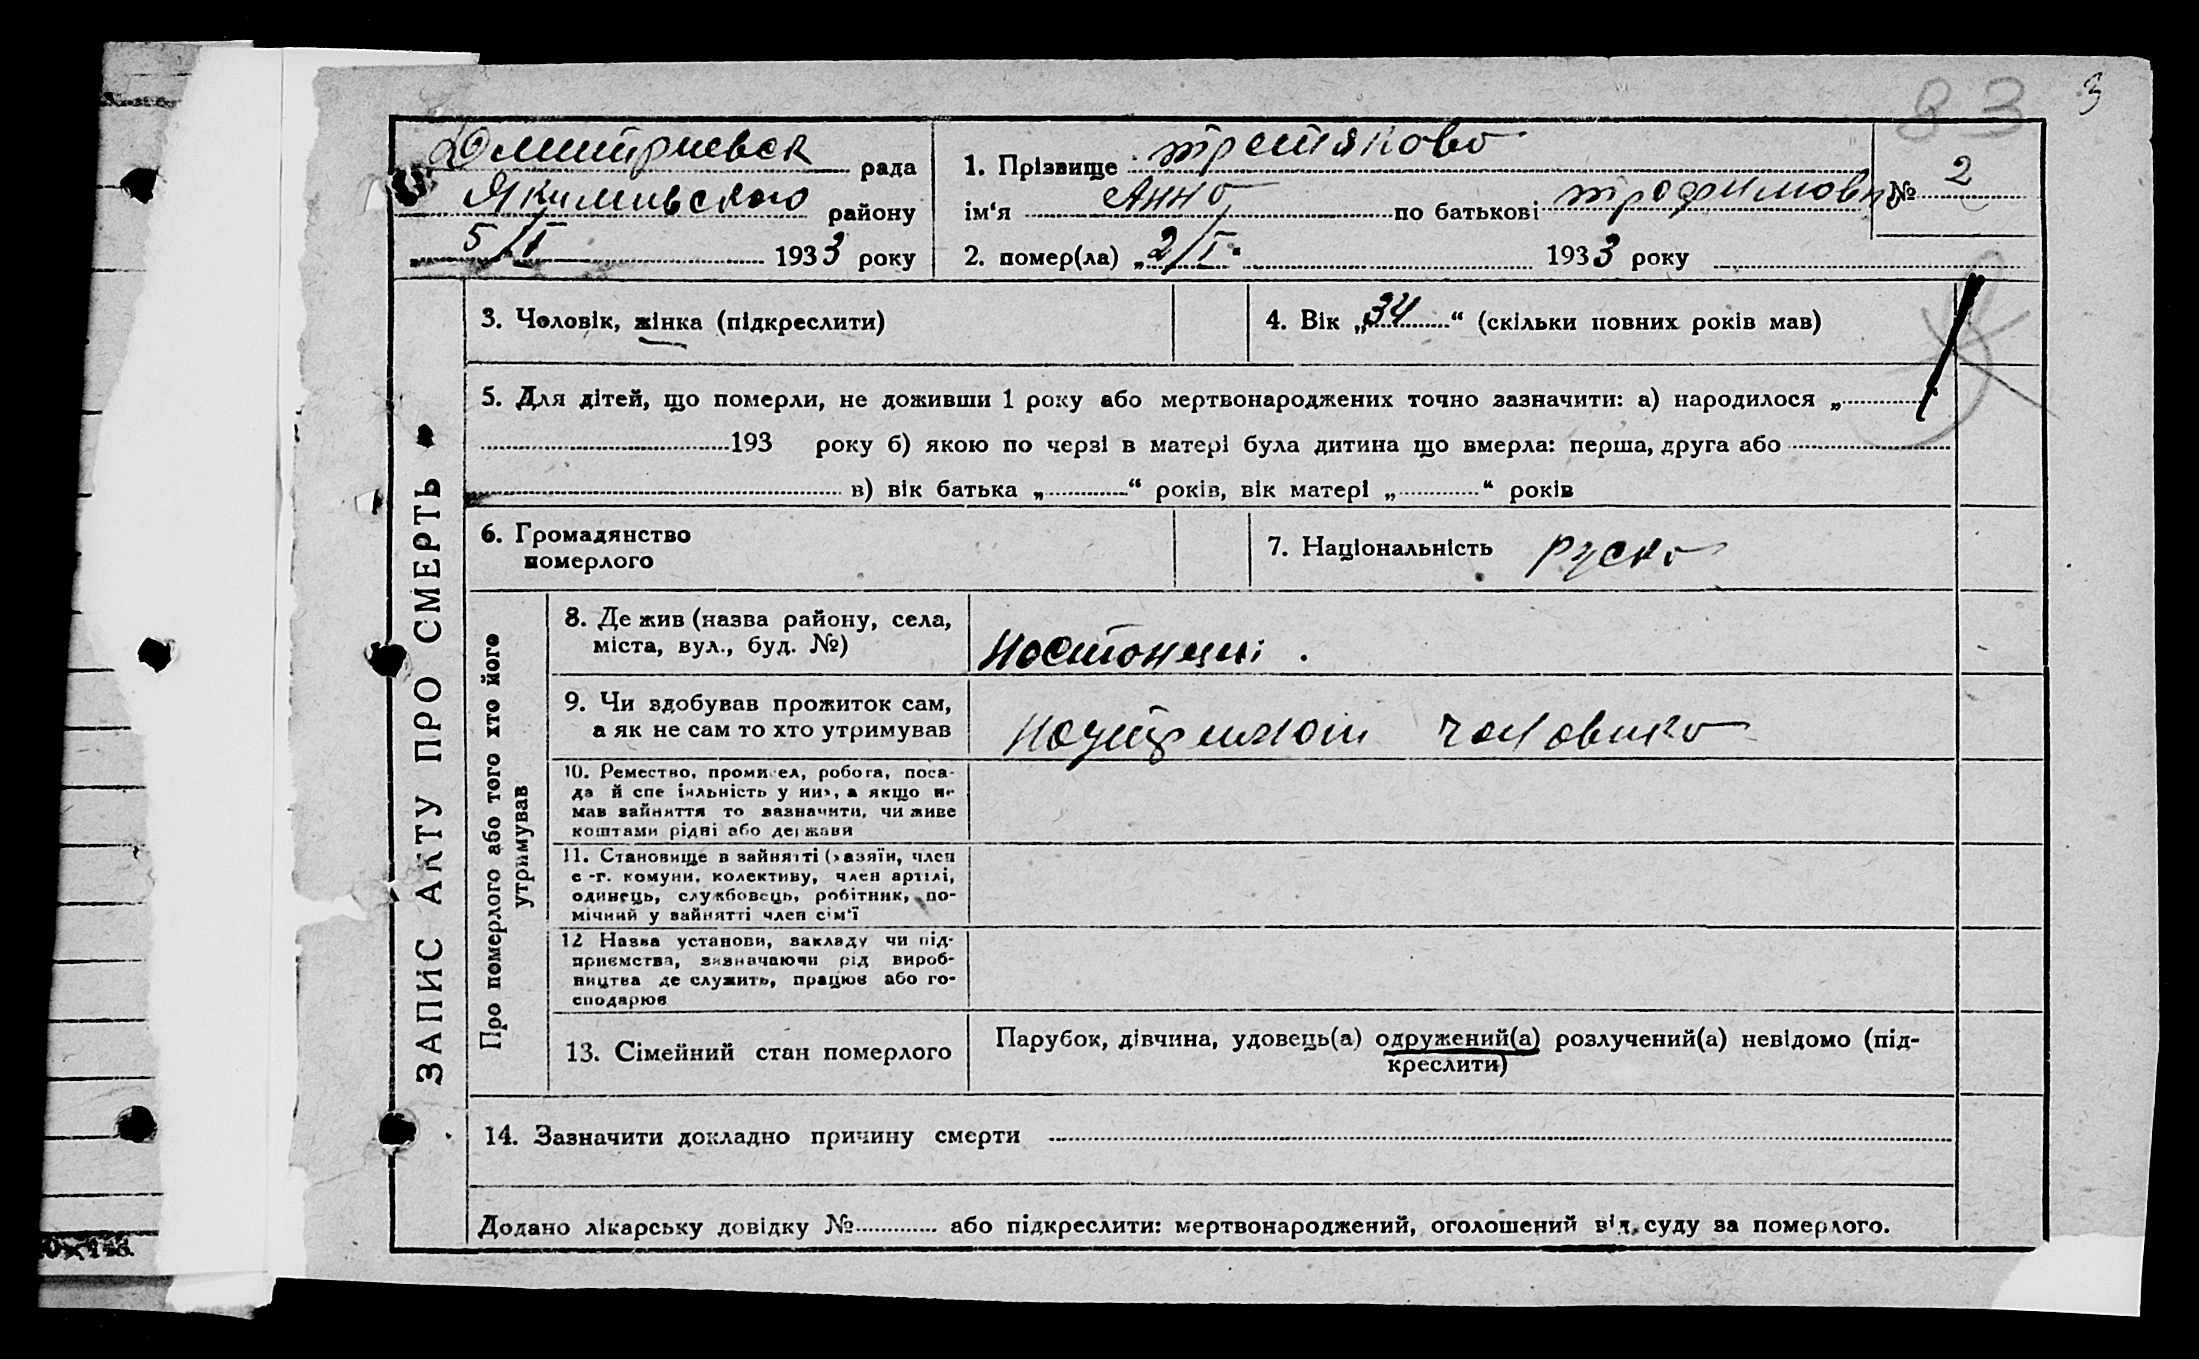 83 3
Дмитриевск рада
Якимивського району
5/I 1933 року
1. Прізвище третякова
ім‘я Анна по батькові трофимовна
2. помер(ла) „2/I“ 1933 року
№ 2
ЗАПИС АКТУ ПРО СМЕРТЬ
3. Чоловік, жінка (підкреслити)
4. Вік „34“ (скільки повних років мав)
5. Для дітей, що померли, не доживши 1 року або мертвонароджених точно зазначити: а) народилося „
193 року б) якою по черзі в матері була дитина що вмерла: перша, друга або
в) вік батька „ “ років, вік матері „ “ років
6. Громадянство
померлого
7. Національність руска
Про померлого або того хто його
утримував
8. Де жив (назва району, села,
міста, вул., буд. №)
на станциі.
9. Чи здобував прожиток сам,
а як не сам то хто утримував
чоловика
10. Ремество, промисел, робота, поса-
да й спеціяльність у них, а якщо не
мав зайняття то зазначити, чи живе
коштами рідні або держави
11. Становище в зайнятті (хазяїн, член
с.-г. комуни, колективу, член артілі,
одинець, службовець, робітник, по-
мічний у зайнятті член сім‘ї
12 Назва установи, закладу чи під-
приємства, зазначаючи рід вироб-
ництва де служить, працює або го-
сподарює
13. Сімейний стан померлого
Парубок, дівчина, удовець(а) одружений(а) розлучений(а) невідомо (під-
креслити)
14. Зазначити докладно причину смерти
Додано лікарську довідку № або підкреслити: мертвонароджений, оголошений від суду за померлого.